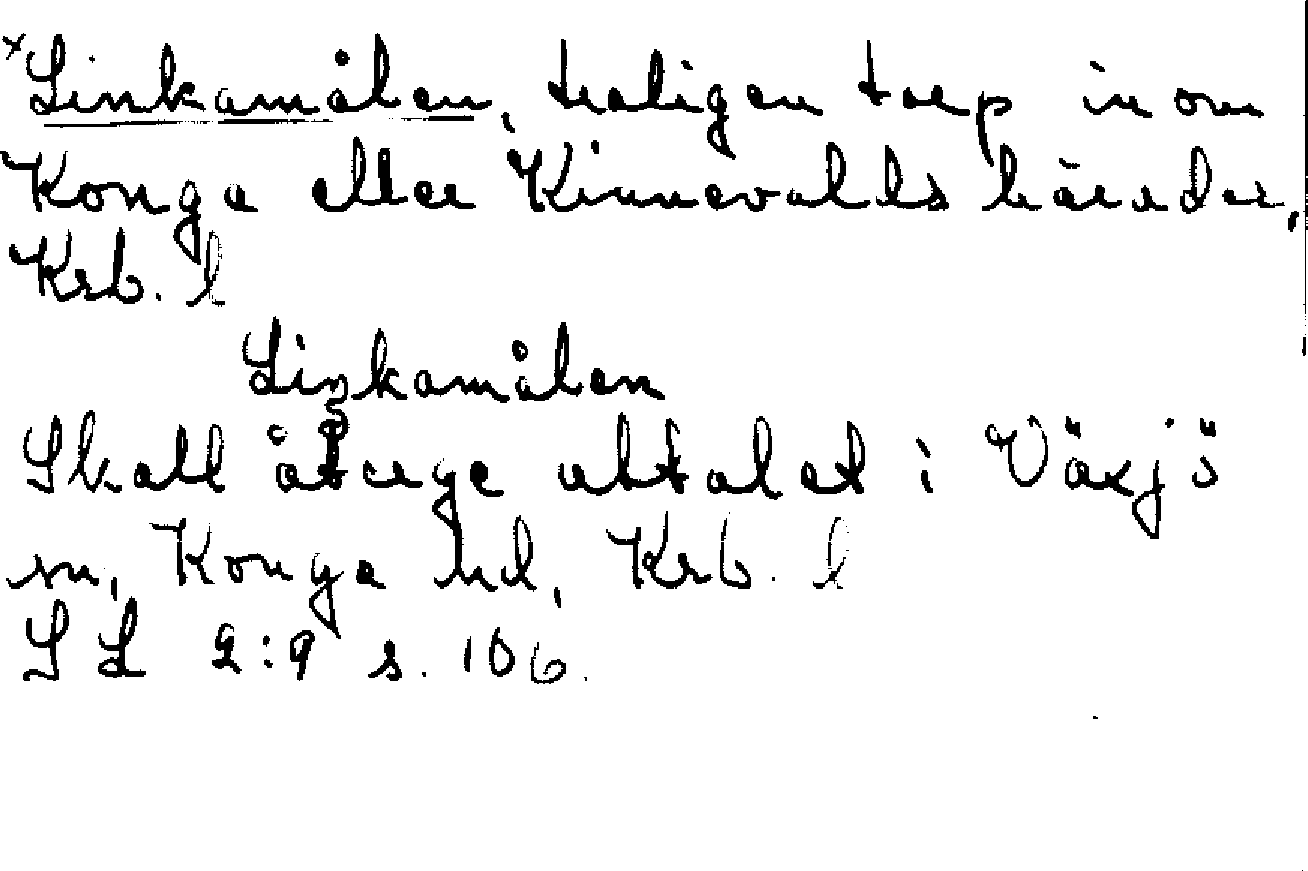 ×Linkamålen, troligen torp inom
Konga eller Kinnevalds härader,
Krb. l
Liŋkamålen
Skall återge uttalet i Växjö
sn, Konga hd, Krb. l
SL 2:9 s. 106.